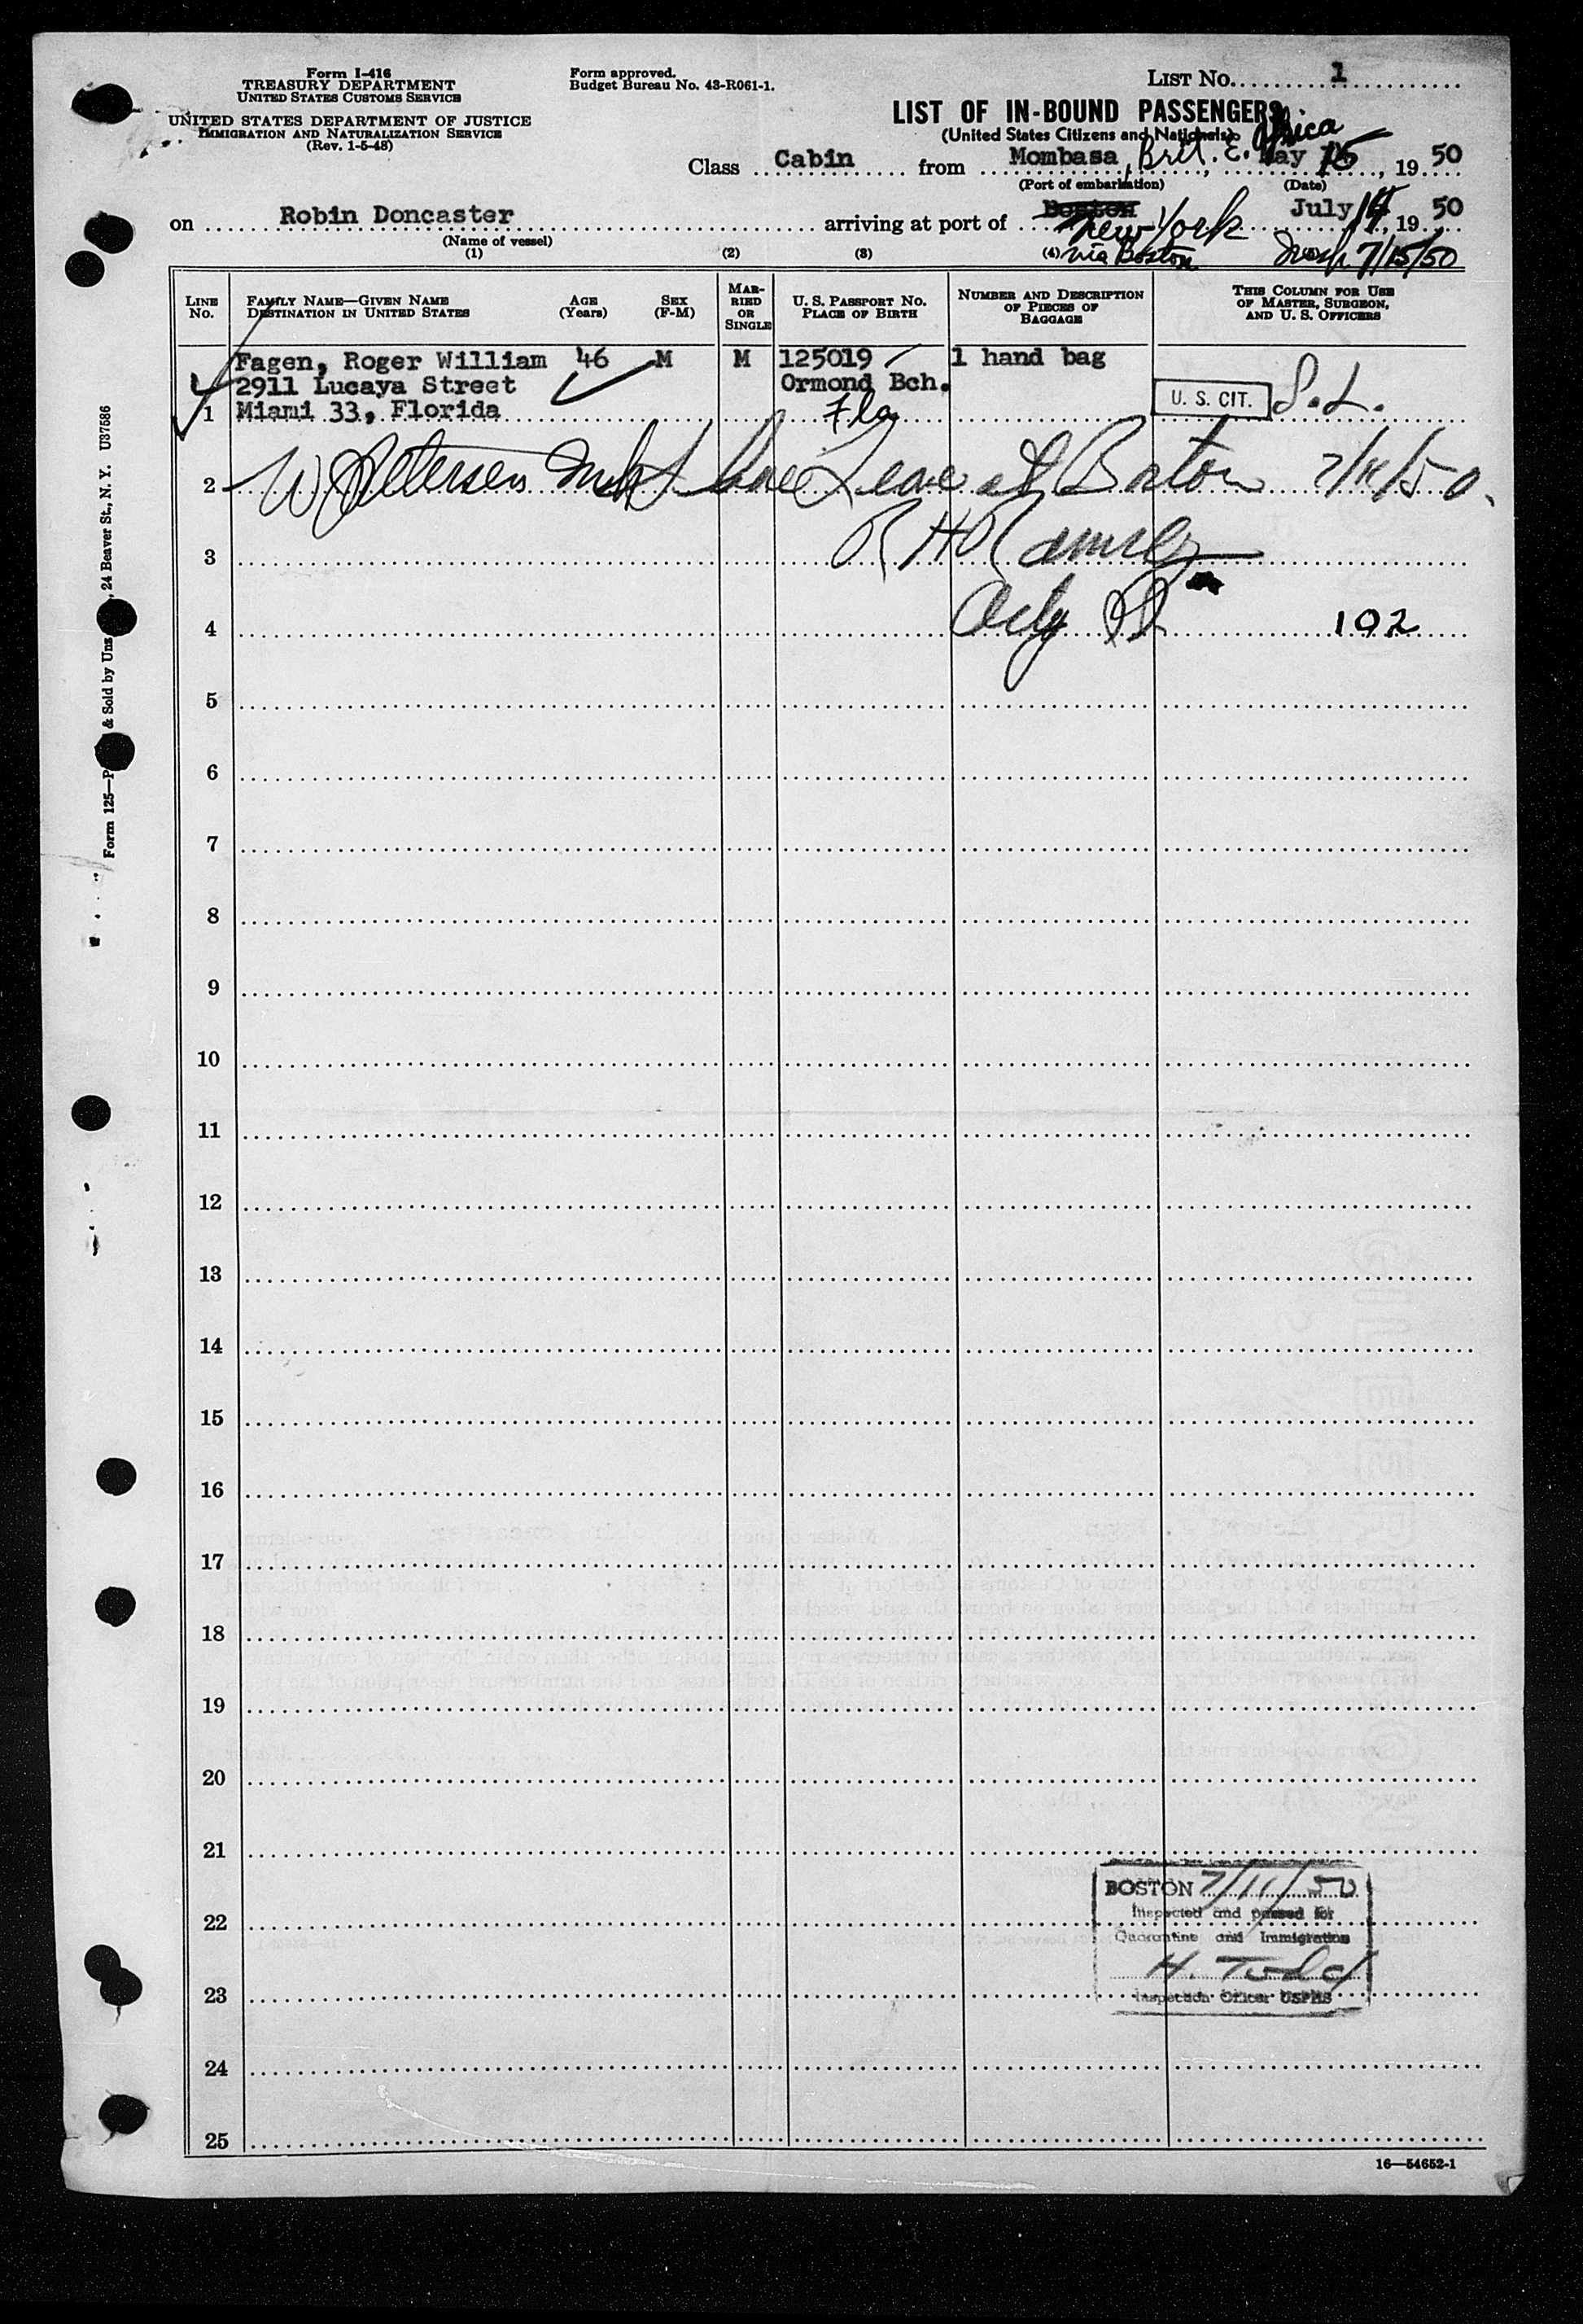 Form I-416
TREASURY DEPARTMENT
UNITED STATES CUSTOMS SERVICE
UNITED STATES DEPARTMENT OF JUSTICE
IMMIGRATION AND NATURALIZATION SERVICE
(Rev. 1-5-48)
Form approved.
Budget Bureau No. 43-R061-1.
LIST No. 1
LIST OF IN-BOUND PASSENGERS
(United States Citizens and Nationals)
Class Cabin from Mombasa, Brit. E. Africa May 15, 1950
(Port of embarkation) (Date)
on Robin Doncaster arriving at port of Boston New York July 14, 1950
(Name of vessel)
via Boston 7/15/50
(1) (2) (3) (4)
LINE No.
FAMILY NAME—GIVEN NAME
DESTINATION IN UNITED STATES
AGE (Years)
SEX (F-M)
MARRIED OR SINGLE
U. S. PASSPORT No.
PLACE OF BIRTH
NUMBER AND DESCRIPTION OF PIECES OF BAGGAGE
THIS COLUMN FOR USE OF MASTER, SURGEON, AND U. S. OFFICERS
Fagen, Roger William 46 M M 125019 1 hand bag
2911 Lucaya Street Ormond Bch.
1 Miami 33, Florida Fla U. S. CIT. S.L.
2 W Petersen Leave at Boston 7/11/50.
3 R H Ramsey
4 102
5
6
7
8
9
10
11
12
13
14
15
16
17
18
19
20
21
BOSTON 7/11/50
Inspected and passed for
22
Quarantine and Immigration
H. Todd
23
Inspection Officer USPHS
24
25
16—54652-1
Form 125— & Sold by Unz , 24 Beaver St., N. Y. U37586